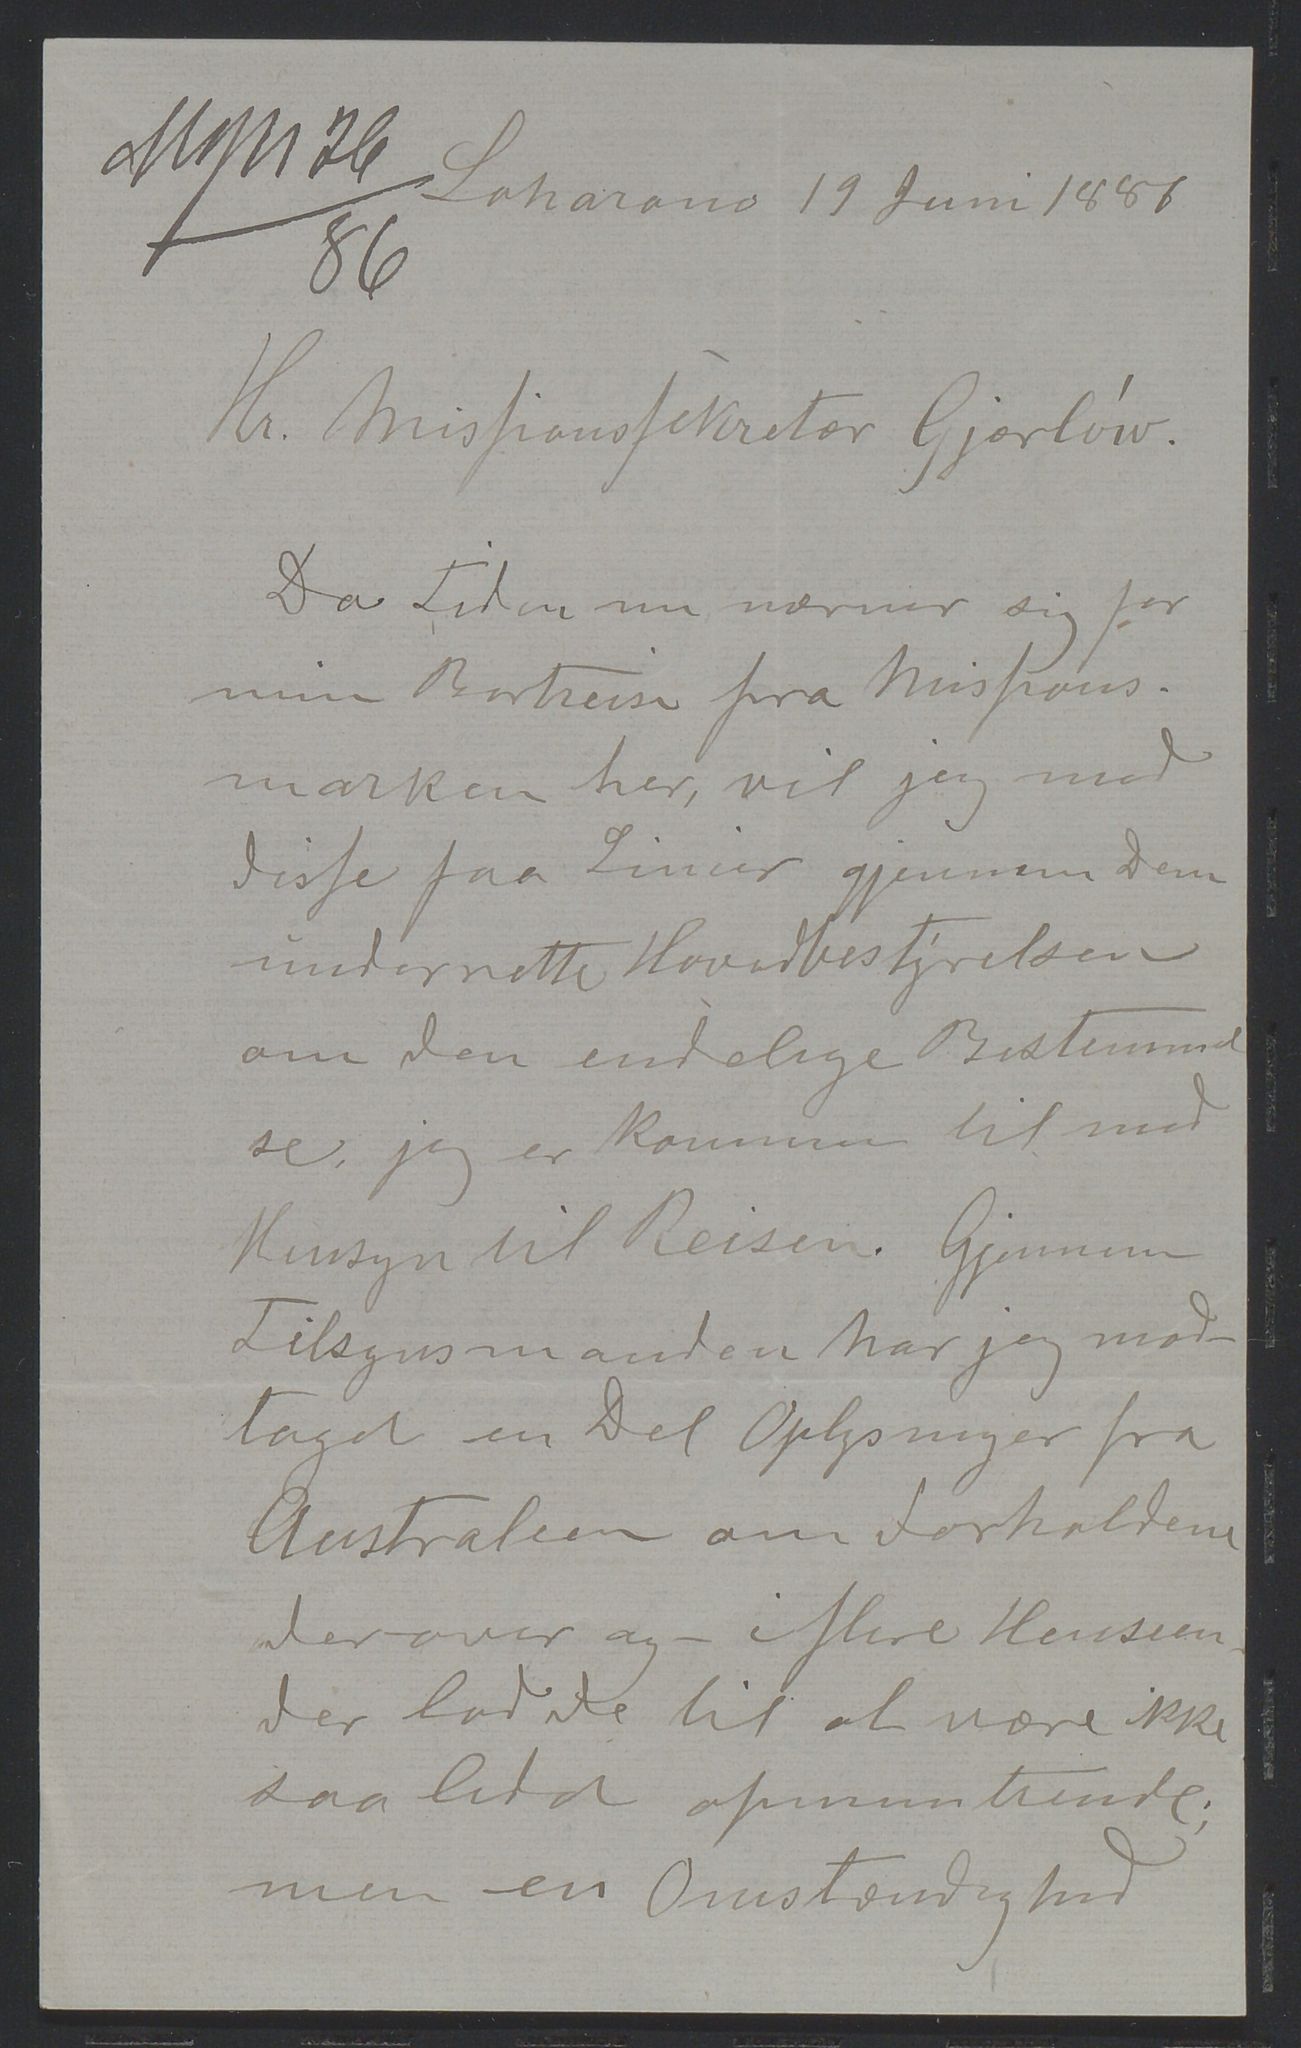 26
86
Loharano 19 Juni 1886
Hr. Missionssekretær Gjerløw.
Da Tiden nu nærmer sig for
min Bortreise fra Missions-
marken her, vil jeg med
disse faa Linier gjennem Dem
underrette Hovedbestyrelsen
om den endelige Bestemmel
se, jeg er kommen til med
Hensyn til Reisen. Gjennem
Tilsynsmanden har jeg mod-
taget en Del Oplysninger fra
Australien om Forholdene
derover og i flere Henseen-
der lod de til at være ikke
saa lidet opmuntrende;
men en Omstændighed